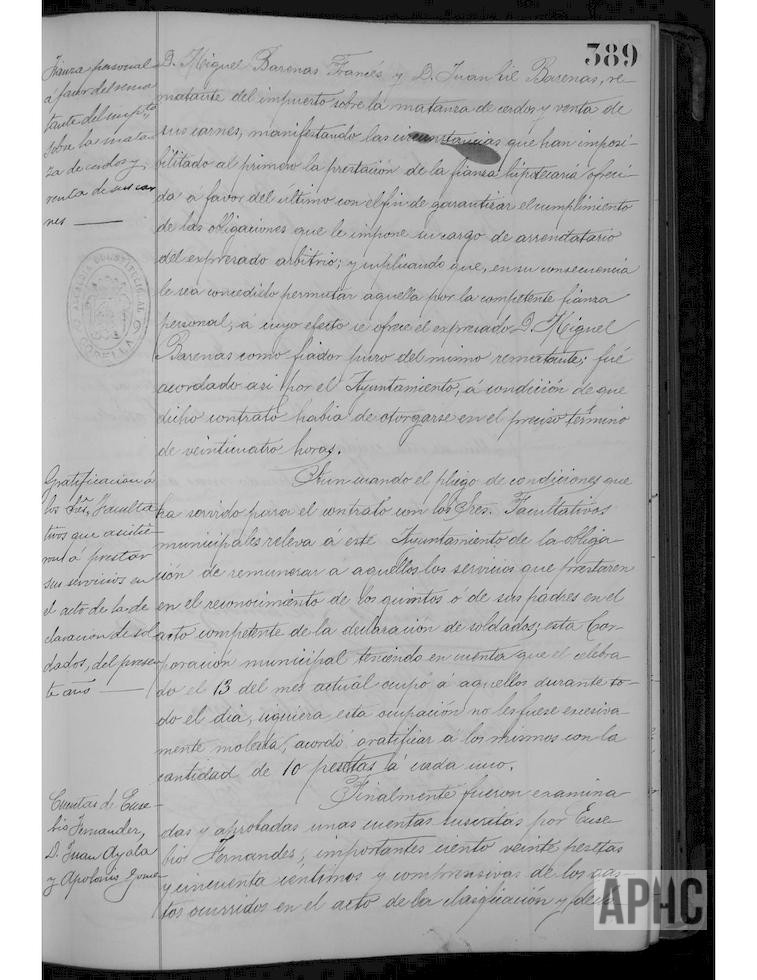 389
Fianza personal
á favor del rema
tante del impto
sobre la matan
za de cerdos y
venta de sus car
nes
D. Miguel Barenas Francés y D. Juan Gil Barenas, re-
matante del impuerto sobre la matanza de cerdos y venta de
sus carnes, manifestando las circunstancias que han imposi-
bilitado al primero la prestación de la fianza hipotecaria ofreci-
da a favor del último con el fin de garantizar el cumplimiento
de las obligaciones que le impone su cargo de arrendatario
del expresado arbitrio; y suplicando que, en su consecuencia
le sea concedido permutar aquella por la competente fianza
personal, á cuyo efecto se ofrece el expresado D. Miguel
Barenas como fiador puro del mismo rematante; fué
acordado asi por el Ayuntamiento, á condición de que
dicho contrato habia de otorgarse en el preciso término
de veinticuatro horas.
ALCALDIA CONSTITUCIONAL
CORELLA
Gratificacion á
los Sres. Faculta
tivos que asistie
ron á prestar
sus servicios en
el acto de la de
claración de sol
dados, del presen
te año
Aun cuando el pliego de condiciones que
ha servido para el contrato con los Sres. Facultativos
municipales releva á este Ayuntamiento de la obliga
ción de remunerar a aquellos los servicios que prestaren
en el reconocimiento de los quintos o de sus padres en el
acto competente de la declaración de soldados; esta Cor-
poracion municipal teniendo en cuenta que el celebra-
do el 13 del mes actual ocupó á aquellos durante to-
do el dia, siquiera esta ocupación no les fuese excesiva-
mente molesta, acordó gratificar á los mismos con la
cantidad de 10 pesetas á cada uno.
Cuentas de Euse-
bio Fernandez,
D. Juan Ayala
y Apolonio Gome-
Finalmente fueron examina
das y aprobadas unas cuentas suscritas por Euse
bio Fernandes, importantes ciento veinte pesetas
y cincuenta centimos y comprensivas de los gas-
tos ocurridos en el acto de la clasificación y decla-
APHC